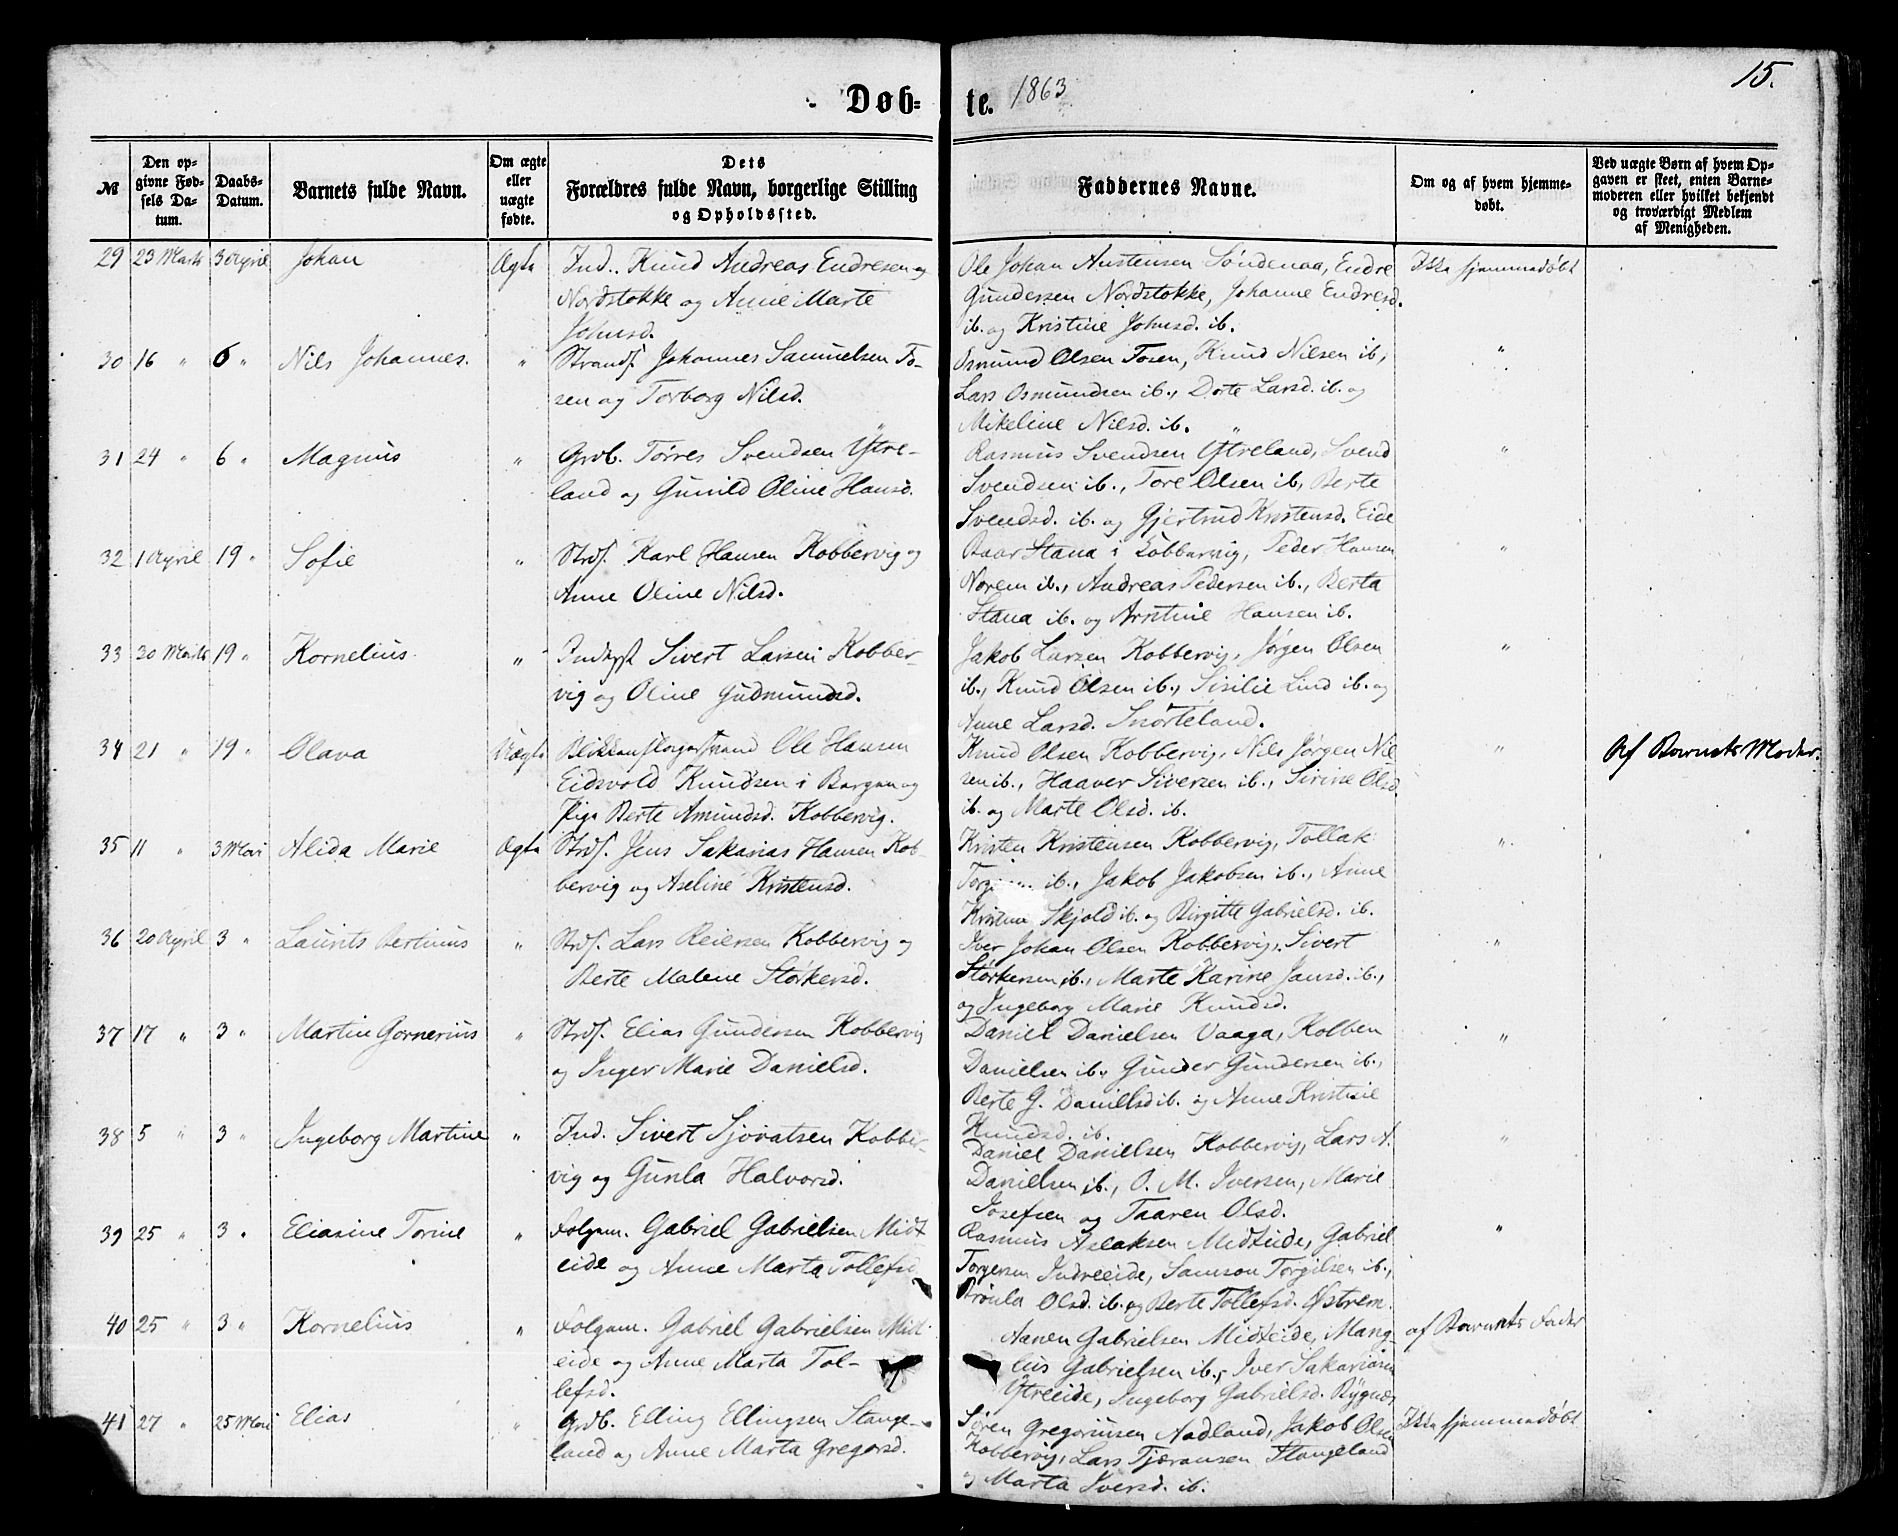 Døb=
te. 1863
15.
№
Den op-
givne Fød-
sels Da-
tum.
Daabs-
Datum.
Barnets fulde Navn.
Om ægte
eller
uægte
fødte.
Dets
Forældres fulde Navn, borgerlige Stilling
og Opholdssted.
Faddernes Navne.
Om og af hvem hjemme-
døbt.
Ved uægte Børn af hvem Op-
gaven er skeet, enten Barne-
moderen eller hvilket bekjendt
og troværdigt Medlem
af Menigheden.
29 23 Marts 3 April Johan Ægte Ind. Knud Andreas Endresen og
Nordstokke og Anne Marte
Johnsd.
Ole Johan Austensen Søndenaa, Endre
Gundersen Nordstokke, Johanne Endresd.
ib. og Kristine Johnsd. ib.
Ikke hjemmedøbt
30 16 " 6 " Nils Johannes. " Strands. Johannes Samuelsen To-
sen og Torborg Nilsd.
Osmund Olsen Tosen, Knud Nilsen ib,
Lars Osmundsen ib., Dorte Larsd. ib. og
Mikeline Nilsd. ib.
"
31 24 " 6 " Magnus " Grdb. Tørres Svendsen Ytre-
land og Gunild Oline Hansd.
Rasmus Svendsen Ytreland, Svend
Svendsen ib., Tore Olsen ib, Berte
Svendsd. ib. og Gjertrud Kristensd. Eide
"
32 1 April 19 " Sofie " Strds. Karl Hansen Kobbervig og
Anne Oline Nilsd.
Baar Stana i Kobbervig, Peder Hansen
Norem ib., Andreas Pedersen ib., Berta
Stana ib. og Hansen ib.
"
33 30 Marts 19 " Kornelius " Sivert Larsen Kobber-
vig og Oline Gudmundsd.
Jakob Larsen Kobbervig, Jørgen Olsen
ib., Knud Olsen ib., Sisilie Lind ib. og
Anne Larsd. Snørteland.
"
34 21 " 19 " Olava Uægte Ole Hansen
Eidsvold Knudsen i Bergen og
Pige Berte Amundsd. Kobbervig.
Knud Olsen Kobbervig, Nils Jørgen Nil
sen ib., Haaver Siversen ib., Sirine Olsd.
ib. og Marte Olsd. ib.
"
Af Barnets Moder.
35 11 " 3 Mai Alida Marie Ægte Strds. Jens Sakarias Hansen Kob-
bervig og Aseline Kristensd.
Kristen Kristensen Kobbervig, Tollak
ib., Jakob Jakobsen ib., Anne
Kristine Skjold ib. og Birgitte Gabrielsd. ib.
"
36 20 April 3 " Laurits Bertinus " Strds. Lars Reiersen Kobbervig og
Berte Malene Størkersd.
Iver Johan Olsen Kobbervig, Sivert
Størkersen ib., Marte Karine Jansd. ib.,
og Ingeborg Marie Knudsd.
"
37 17 " 3 " Martin Gornerius " Strds. Elias Gundersen Kobbervig
og Inger Marie Danielsd.
Daniel Danielsen Vaaga, Kolben
Danielsen ib., Gunder Gundersen ib.,
Berte G. Danielsd ib. og Anne Kristine
Knudsd. ib.
"
38 5 " 3 " Ingeborg Martine " Ind. Sivert Sjovatsen Kobber-
vig og Gunla Halvorsd.
Daniel Danielsen Kobbervig, Lars A.
Danielsen ib., O. M. Iversen, Marie
Josefsen og Taaren Olsd.
"
39 25 " 3 " Eliasine Torine " Folgem. Gabriel Gabrielsen Midt
eide og Anne Marta Tollefsd
Rasmus Aslaksen Midteide, Gabriel
Torgersen Indreeide, Samson Torgilsen ib.,
Olsd. ib. og Berte Tollefsd. Østrem.
"
40 25 " 3 " Kornelius " Folgem. Gabriel Gabrielsen Midt-
eide og Anne Marta Tol-
lefsd.
Aanen Gabrielsen Midteide, Mang-
lus Gabrielsen ib., Iver Sakariasen
Ytreeide, Ingeborg Gabrielsd. Rygnes,
af Barnets Fader
41 27 " 25 Mai Elias " Grdb. Elling Ellingsen Stange-
land og Anne Marta Gregorsd.
Søren Gregoriusen Aadland, Jakob Olsen
Kobbervig, Lars Tjæransen Stangeland
og Marta Iversd. ib.
Ikke hjemmedøbt